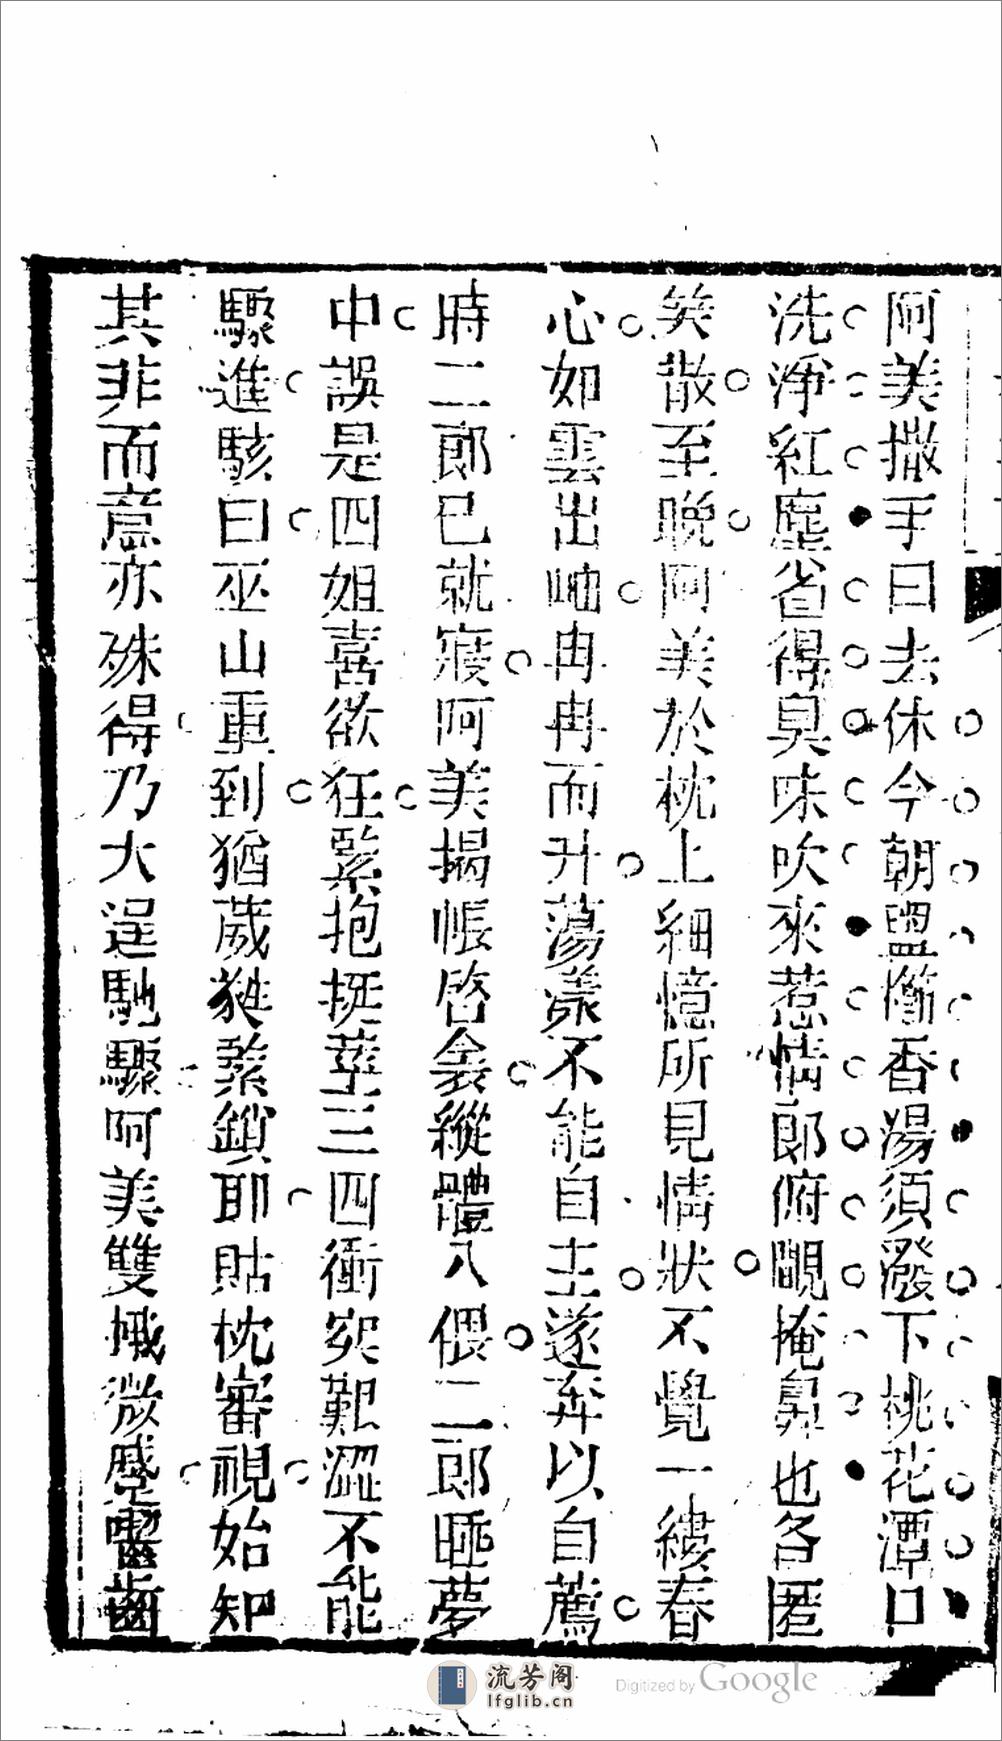 阿美撒手曰去休今朝盥㵠香湯須潑下桃花潭口
洗淨紅塵省得臭味吹來惹情郎俯䁱掩鼻也各匿
笑散至晚阿美於枕上細憶所見情狀不覺一縷春
心如雲出岫冉冉而升蕩漾不能自主遂奔以自薦
時二郎已就寢阿美揭帳啓衾縱體入偎二郎睡夢
中誤是四姐喜欲狂緊抱挺莖三四衝突艱澀不能
驟進駭曰巫山重到猶葳蕤緊鎖耶貼枕審視始知
其非而意亦殊得乃大逞馳驟阿美雙蛾微蹙嚙齒
流芳阁
lfglib.cn
Digitized by Google